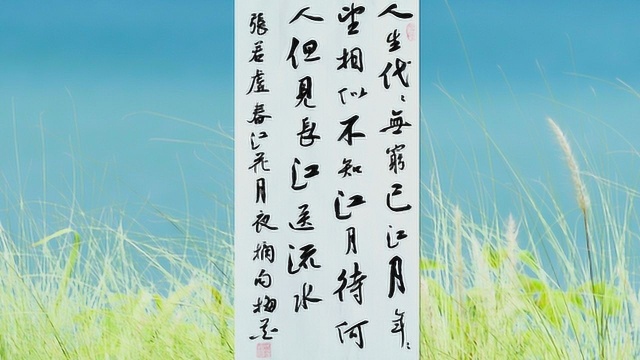 人生代〻無窮已江月年〻
望相似不知江月待何
人但見長江送流水
張若虛春江花月夜摘句